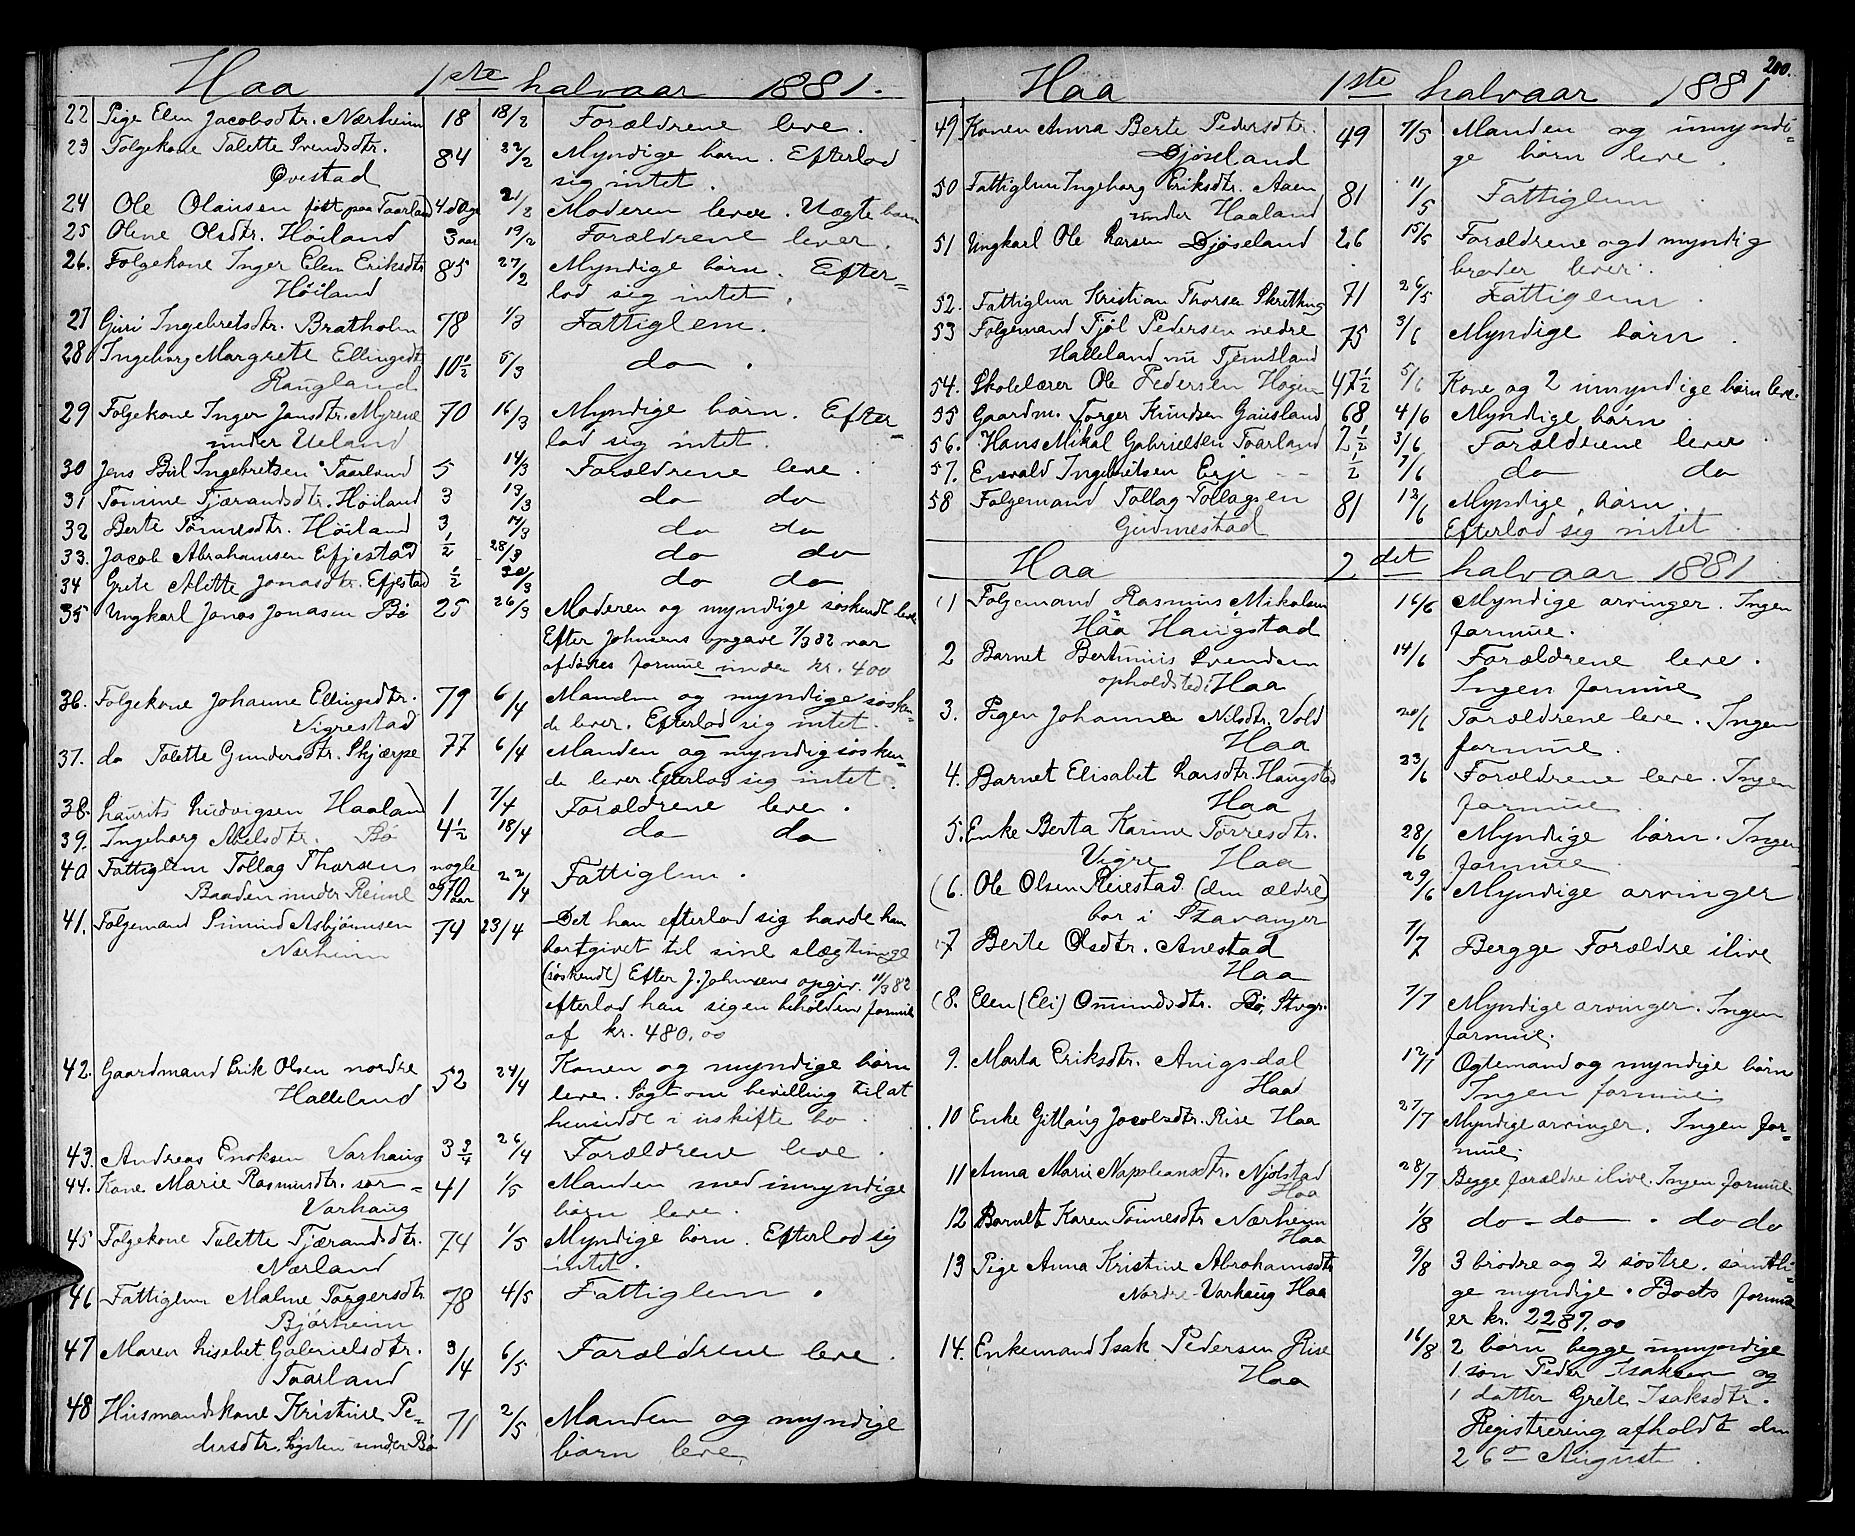 Haa 1ste halvaar 1881.
22 Pige Elen Jacobsdtr. Nærheim 18 18/2 Forældrene leve.
23 Folgekone Talette Svendsdtr. 84 22/2 Myndige børn. Efterlod
Øvestad sig intet.
24 Ole Olausen født paa Taarland 4 dage 21/2 Moderen lever. Uægte barn
25 Oline Olsdtr. Høiland 3 aar 19/2 Forældrene lever.
26. Folgekone Inger Elen Eriksdtr 85 27/2 Myndige børn. Efter-
Høiland lod sig intet.
27 Guri Ingebretsdtr. Bratholm 78 1/3 Fattiglem.
28 Ingeborg Margrete Ellingsdtr 10½ 5/3 do.
Haugland
29 Folgekone Inger Jansdtr. Myrene 70 16/3 Myndige børn. Efter-
under Ueland lod sig intet.
30 Jens Ingebretsen Taarland 5 14/3 Forældrene leve.
31 Tomine Tjærandsdtr. Høiland 3 13/3 do do
32 Berte Tønnesdtr. Høiland 3 17/3 do do
33. Jacob Abrahamsen Efjestad ½ 28/3 do do
34 Grete Mette Jonasdtr. Efjestad ½ 30/3 do do
35 Ungkarl Jonas Jonasen Bø 25 26/3 Moderen og myndige søskende leve
Efter Johnsens opgave 7/3 82 var
afdødes formue under kr. 400
36. Folgekone Johanne Ellingsdtr. 79 6/4 Manden og myndige søsken-
Vigrestad de lever. Efterlod sig intet.
37. do Talette Gundersdtr. Skjærpe 77 6/4 Manden og myndig søsken-
de lever. Efterlod sig intet.
38. Laurits Ludvigsen Haaland 1 7/4 Forældrene leve.
39. Ingeborg Abelsdtr. Bø 4½ 18/4 do do
40 Fattiglem Tollag Thorsen nogle 22/4 Fattiglem.
Baaden under Reime og 70 aar
41. Folgemand Simund Asbjørnsen 74 23/4 Det han efterlod sig havde han
Nærheim bortgivet til sine slægtninge
(søskende) Efter J. Johnsens opgiv. 11/3 82
efterlod han sig en beholden formue
af kr. 480,00
42. Gaardmand Erik Olsen nordre 52 24/4 Konen og myndige børn
Halleland leve. Søgt om bevilling til at
hensidde i uskifte bo.
43. Andreas Enoksen Varhaug 3¾ 26/4 Forældrene leve.
44. Kone Marie Rasmusdtr. sør- 41 1/5 Manden med umyndige
Varhaug børn leve.
45 Folgekone Talette Tjærandsdtr. 74 1/5 Myndige børn. Efterlod sig
Nærland intet.
46 Fattiglem Malene Torgersdtr 78 4/5 Fattiglem.
Bjørheim
47 Maren Lisebet Gabrielsdtr. 3/4 6/5 Forældrene leve.
Taarland
48 Husmandskone Kristine Pe- 71 2/5 Manden og myndige
dersdtr. under Bø børn leve
200.
Haa 1ste halvaar 1881
49 Konen Anna Berte Pedersdtr. 49 7/5 Manden og umyndi-
Djøseland ge børn leve.
50 Fattiglem Ingeborg Eriksdtr. Aaen 81 11/5 Fattiglem
under Haaland
51 Ungkarl Ole Larsen Djøseland 26 15/5 Forældrene og 1 myndig
broder lever.
52. Fattiglem Kristian Thorsen Skretting 71 26/5 Fattiglem.
53 Folgemand Tjøl Pedersen nedre 75 3/6 Myndige børn.
Halleland nu Tjemsland
54. Skolelærer Ole Pedersen Hogen 47½ 5/6 Kone og 2 umyndige børn leve.
55 Gaardm. Torger Knudsen Gausland 68 4/6 Myndige børn
56. Hans Mikal Gabrielsen Taarland 2½ 3/6 Forældrene leve.
57. Enevald Ingebretsen Eje ½ 7/6 do do
58 Folgemand Tollag Tollagsen 81 12/6 Myndige børn.
Gudmestad Efterlod sig intet.
Haa 2det halvaar 1881
1 Folgemand Rasmus Mikalsen 16/6 Myndige arvinger. Ingen
Haa Haugstad formue.
2 Barnet Bertinius Svendsen 14/6 Forældrene leve.
opholdsted: Haa Ingen formue
3. Pigen Johanne Nilsdtr. Vold 20/6 Forældrene leve. Ingen
Haa formue.
4. Barnet Elisabet Larsdtr. Haugstad 23/6 Forældrene leve. Ingen
Haa formue.
5. Enke Berta Karine Torresdtr. 28/6 Myndige børn. Ingen
Vigre Haa formue
6. Ole Olsen Reiestad (den ældre) 29/6 Myndige arvinger
bor i Stavanger
7 Berte Olsdtr. Anestad 7/7 Begge Forældre ilive
Haa
8. Elen (Eli) Omundsdtr. Bø, Stvgr. 7/7 Myndige arvinger. Ingen
formue.
9. Marta Eriksdtr. Anigsdal 12/7 Ægtemand og myndige børn
Haa Ingen formue
10 Enke Gitlaug Jacobsdtr. Rise Haa 27/7 Myndige arvinger. Ingen for-
mue.
11 Anna Marie Napoleansdtr. Njølstad 28/7 Begge forældre ilive. Ingen formue
Haa
12 Barnet Karen Tønnesdtr Nærheim 1/8 do - do. do do
Haa
13 Pige Anna Kristine Abrahamsdtr 9/8 3 brødre og 2 søstre, samtli-
Nordre Varhaug Haa ge myndige. Boets formue
er kr. 2287,00
14. Enkemand Isak Pedersen Rise 16/8 2 børn begge umyndige
Haa 1 søn Peder Isaksen og
1 datter Grete Isaksdtr.
Registrering afholdt den
26de August.